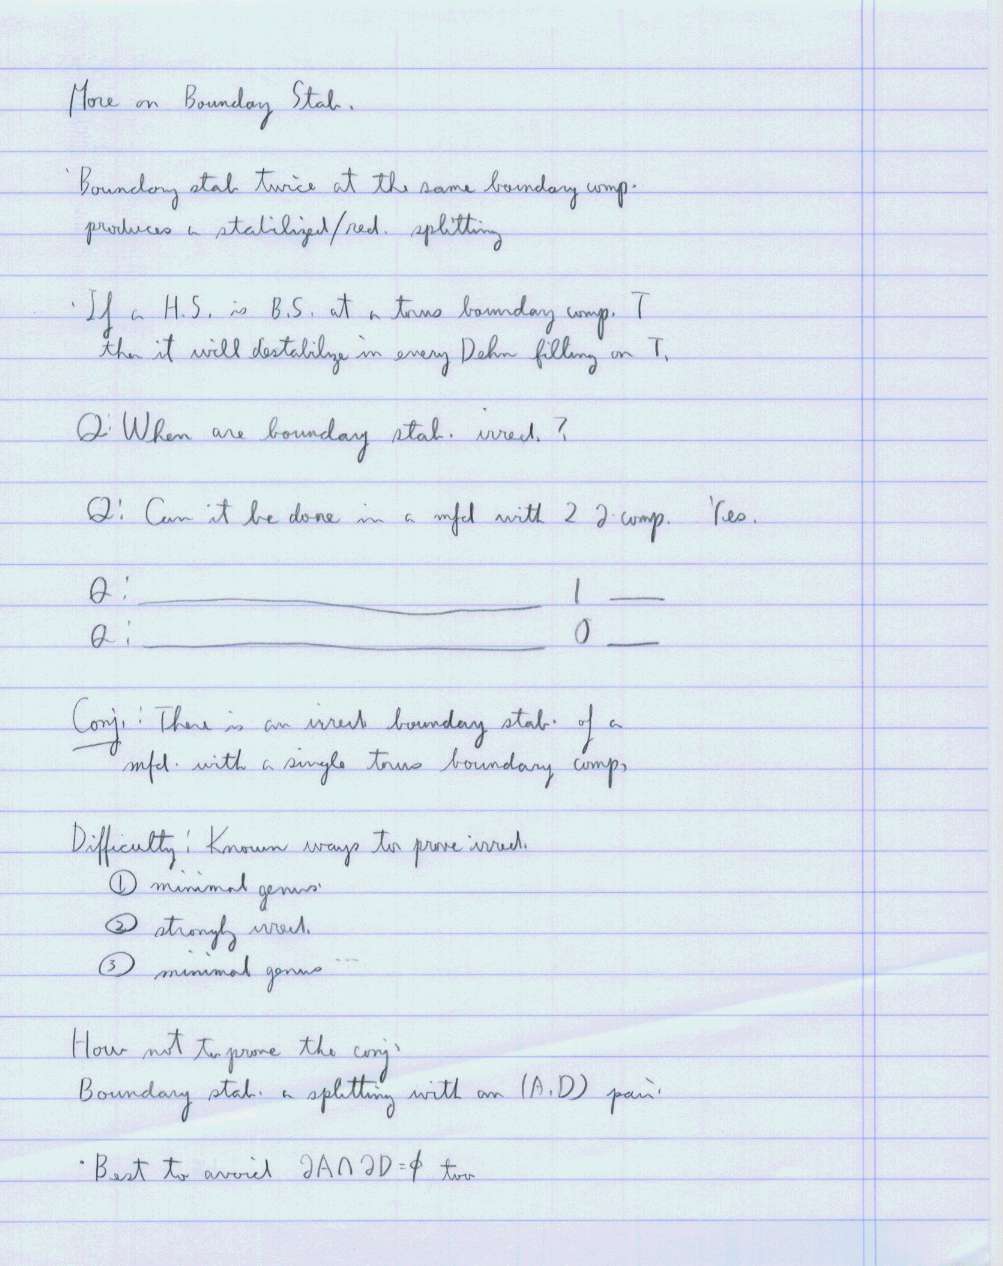 More on Boundary Stab.
· Boundary stab twice at the same boundary comp.
produces a stabilized/red. splitting
· If a H.S. is B.S. at a torus boundary comp. T
then it will destabilize in every Dehn filling on T.
Q: When are boundary stab. irred.?
Q: Can it be done in a mfd with 2 ∂-comp. Yes.
Q: ____ 1 __
Q: ____ 0 __
Conj.: There is an irred boundary stab. of a
mfd. with a single torus boundary comp.
Difficulty: Known ways to prove irred.
① minimal genus.
② strongly irred.
③ minimal genus ---
How not to prove the conj.
Boundary stab. a splitting with an (A,D) pair.
· Best to avoid ∂A∩∂D=∅ too